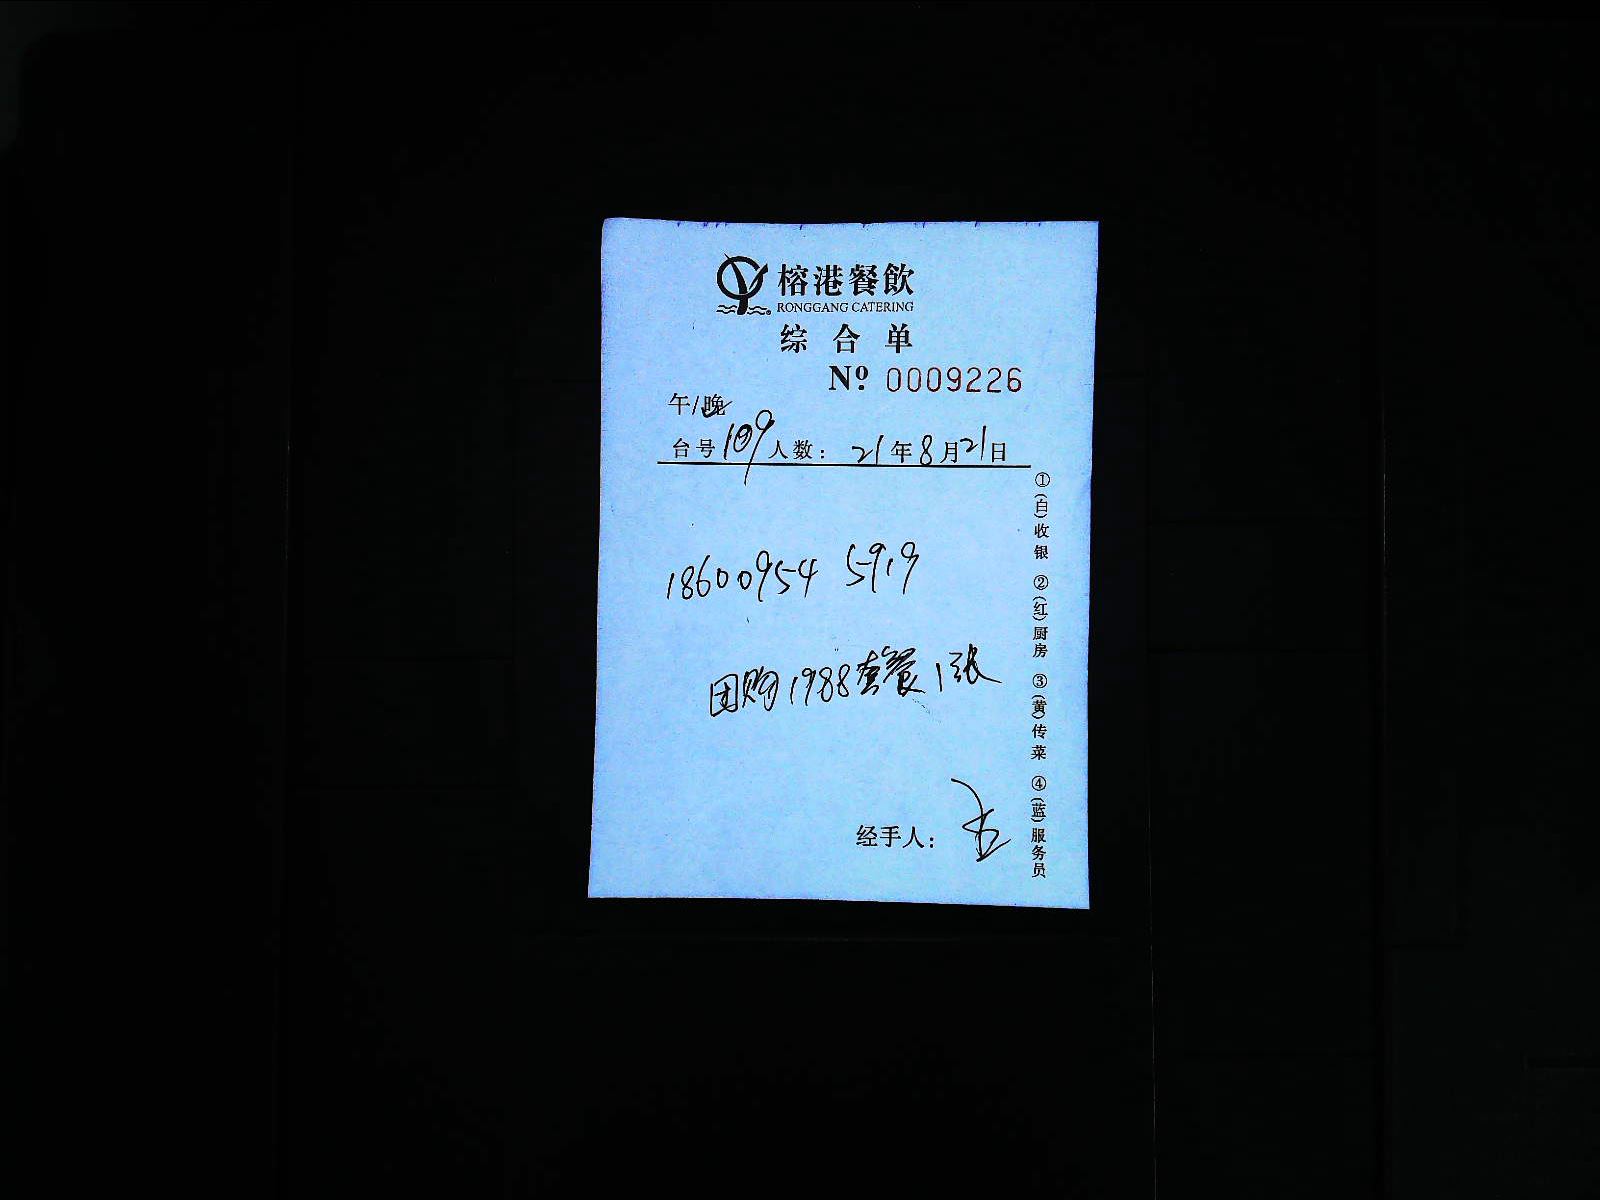 榕港餐飲
RONGGANG CATERING
综合单
Nº 0009226
午/晚
台号 109 人数: 21年8月21日
18600954 5919
团购1988套餐1张
经手人:
①(白)收银 ②(红)厨房 ③(黄)传菜 ④(蓝)服务员